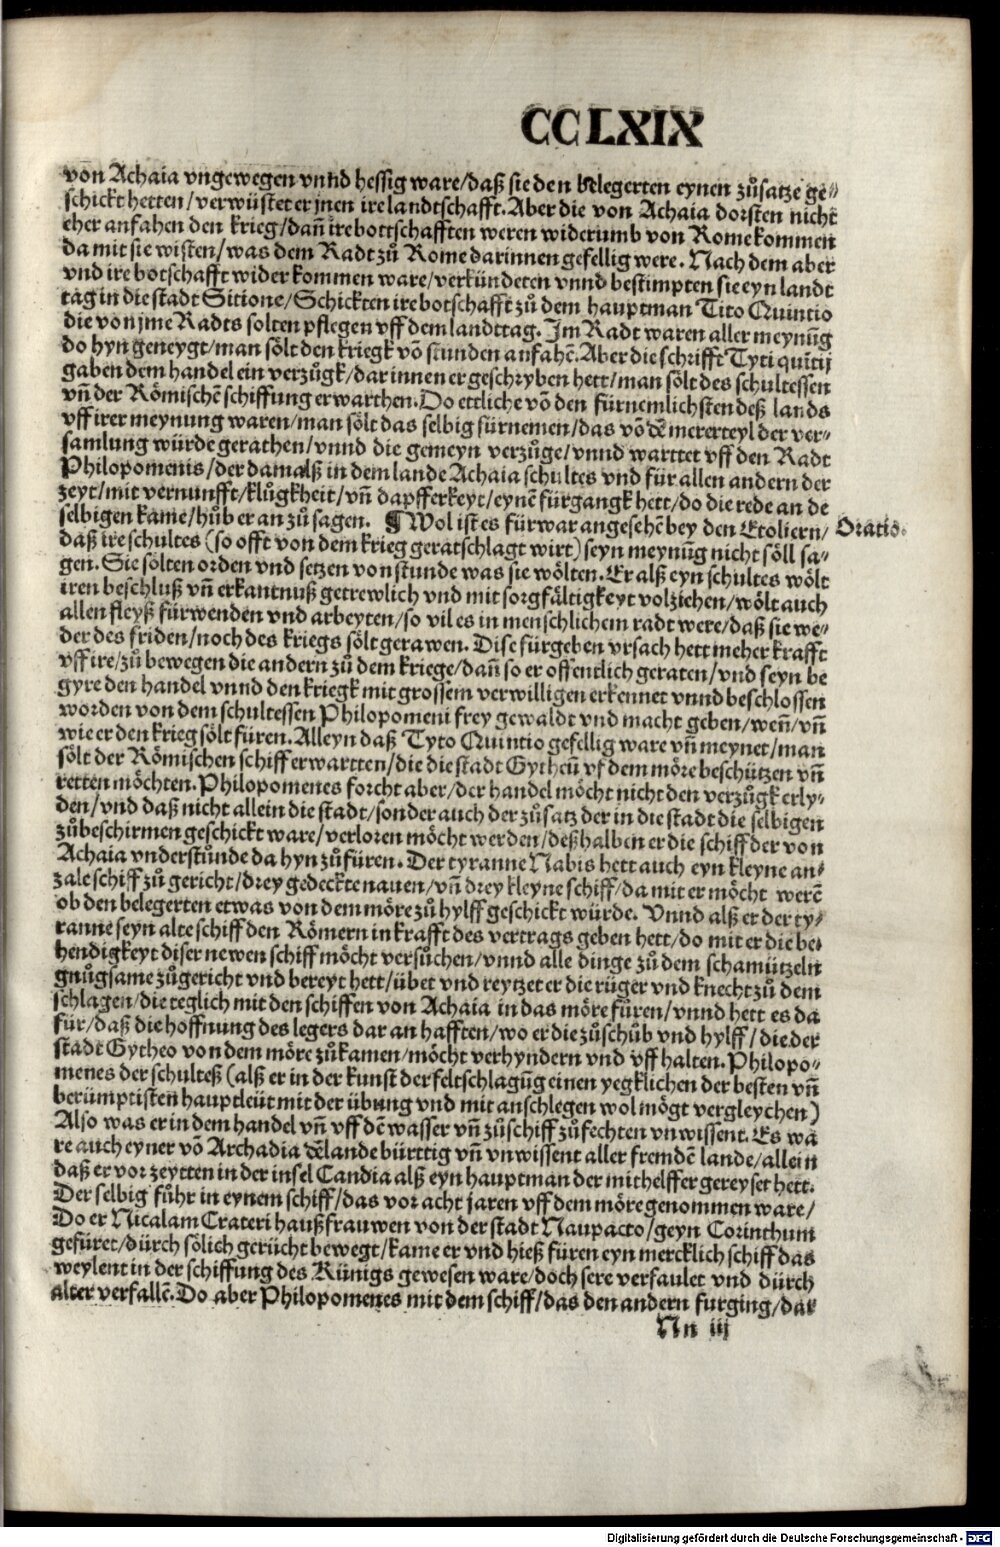 CCLXIX
von Achaia vngewegen vnnd hessig ware/daß sie den belegerten eynen zůsatze ge⸗
schickt hetten/verwüstet er jnen ire landtschafft. Aber die von Achaia dorsten nicht
eher anfahen den krieg/dañ ire bottschafften weren widerumb von Rome kommen
da mit sie wisten/was dem Radt zů Rome darinnen gefellig were. Nach dem aber
vnd ire botschafft wider kommen ware/verkündeten vnnd bestimpten sie eyn landt
tag in die stadt Sitione/Schickten ire botschafft zů dem hauptman Tito Quintio
die von jme Radts solten pflegen vff dem landttag. Im Radt waren aller meynũg
do hyn geneygt/man sölt den kriegk võ stunden anfahẽ. Aber die schrifft Tyti quĩtij
gaben dem handel ein verzůgk/darinnen er geschryben hett/man sölt des schultessen
vñ der Römischẽ schiffung erwarthen. Do ettliche võ den fürnemlichsten deß lands
vff irer meynung waren/man sölt das selbig fürnemen/das võ dẽ mererteyl der ver⸗
samlung würde gerathen/vnnd die gemeyn verzůge/vnnd warttet vff den Radt
Philopomenis/der damalß in dem lande Achaia schultes vnd für allen andern der
zeyt/mit vernunfft/klůgkheit/vñ dapfferkeyt/eynẽ fürgangk hett/do die rede an de
selbigen kame/hůb er an zů sagen. ¶ Wol ist es fürwar angesehẽ bey den Etoliern/
Oratio.
daß ire schultes (so offt von dem krieg geratschlagt wirt) seyn meynũg nicht söll sa⸗
gen. Sie sölten orden vnd setzen von stunde was sie wölten. Er alß eyn schultes wölt
iren beschluß vñ erkantnuß getrewlich vnd mit sorgfältigkeyt volziehen/wölt auch
allen fleyß fürwenden vnd arbeyten/so vil es in menschlichem radt were/daß sie we⸗
der des friden/noch des kriegs sölt gerawen. Dise fürgeben vrsach hett meher krafft
vff ire/zů bewegen die andern zů dem kriege/dañ so er offentlich geraten/vnd seyn be
gyre den handel vnnd den kriegk mit grossem verwilligen erkennet vnnd beschlossen
worden von dem schultessen Philopomeni frey gewaldt vnd macht geben/weñ/vñ
wie er den krieg sölt füren. Alleyn daß Tyto Quintio gefellig ware vñ meynet/man
sölt der Römischen schiff erwartten/die die stadt Gytheũ vf dem möre beschützen vñ
retten möchten. Philopomenes forcht aber/der handel möcht nicht den verzůgk erly⸗
den/vnd daß nicht allein die stadt/sonder auch der zůsatz der in die stadt die selbigen
zůbeschirmen geschickt ware/verloren möcht werden/deßhalben er die schiff der von
Achaia vnderstůnde da hyn zů füren. Der tyranne Nabis hett auch eyn kleyne an⸗
zale schiff zů gericht/drey gedeckte nauen/vñ drey kleyne schiff/da mit er möcht werẽ
ob den belegerten etwas von dem möre zů hylff geschickt würde. Vnnd alß er der ty⸗
ranne seyn alte schiff den Römern in krafft des vertrags geben hett/do mit er die be⸗
hendigkeyt diser newen schiff möcht versůchen/vnnd alle dinge zů dem schamützeln
gnůgsame zůgericht vnd bereyt hett/übet vnd reytzet er die rüger vnd knecht zů dem
schlagen/die teglich mit den schiffen von Achaia in das möre fůren/vnnd hett es da
für/daß die hoffnung des legers dar an hafften/wo er die zůschůb vnd hylff/die der
stadt Gytheo von dem möre zůkamen/möcht verhyndern vnd vff halten. Philopo⸗
menes der schulteß (alß er in der kunst der feltschlagũg einen yegklichen der besten vñ
berümptisten hauptleüt mit der übung vnd mit anschlegen wol mögt vergleychen)
Also was er in dem handel vñ vff dẽ wasser vñ zůschiff zů fechten vnwissent. Es wa
re auch eyner võ Archadia dẽ lande bürttig vñ vnwissent aller fremdẽ lande/allein
daß er vor zeytten in der insel Candia alß eyn hauptman der mithelffer gereyset hett.
Der selbig fůhr in eynem schiff/das vor acht jaren vff dem möre genommen ware/
Do er Nicalam Crateri haußfrauwen von der stadt Naupacto/geyn Corinthum
gefüret/dürch sölich gerücht bewegt/kame er vnd hieß füren eyn mercklich schiff das
weylent in der schiffung des Künigs gewesen ware/doch sere verfaulet vnd dürch
alter verfallẽ. Do aber Philopomenes mit dem schiff/das den andern furging/dar
Nn iij
Digitalisierung gefördert durch die Deutsche Forschungsgemeinschaft - DFG